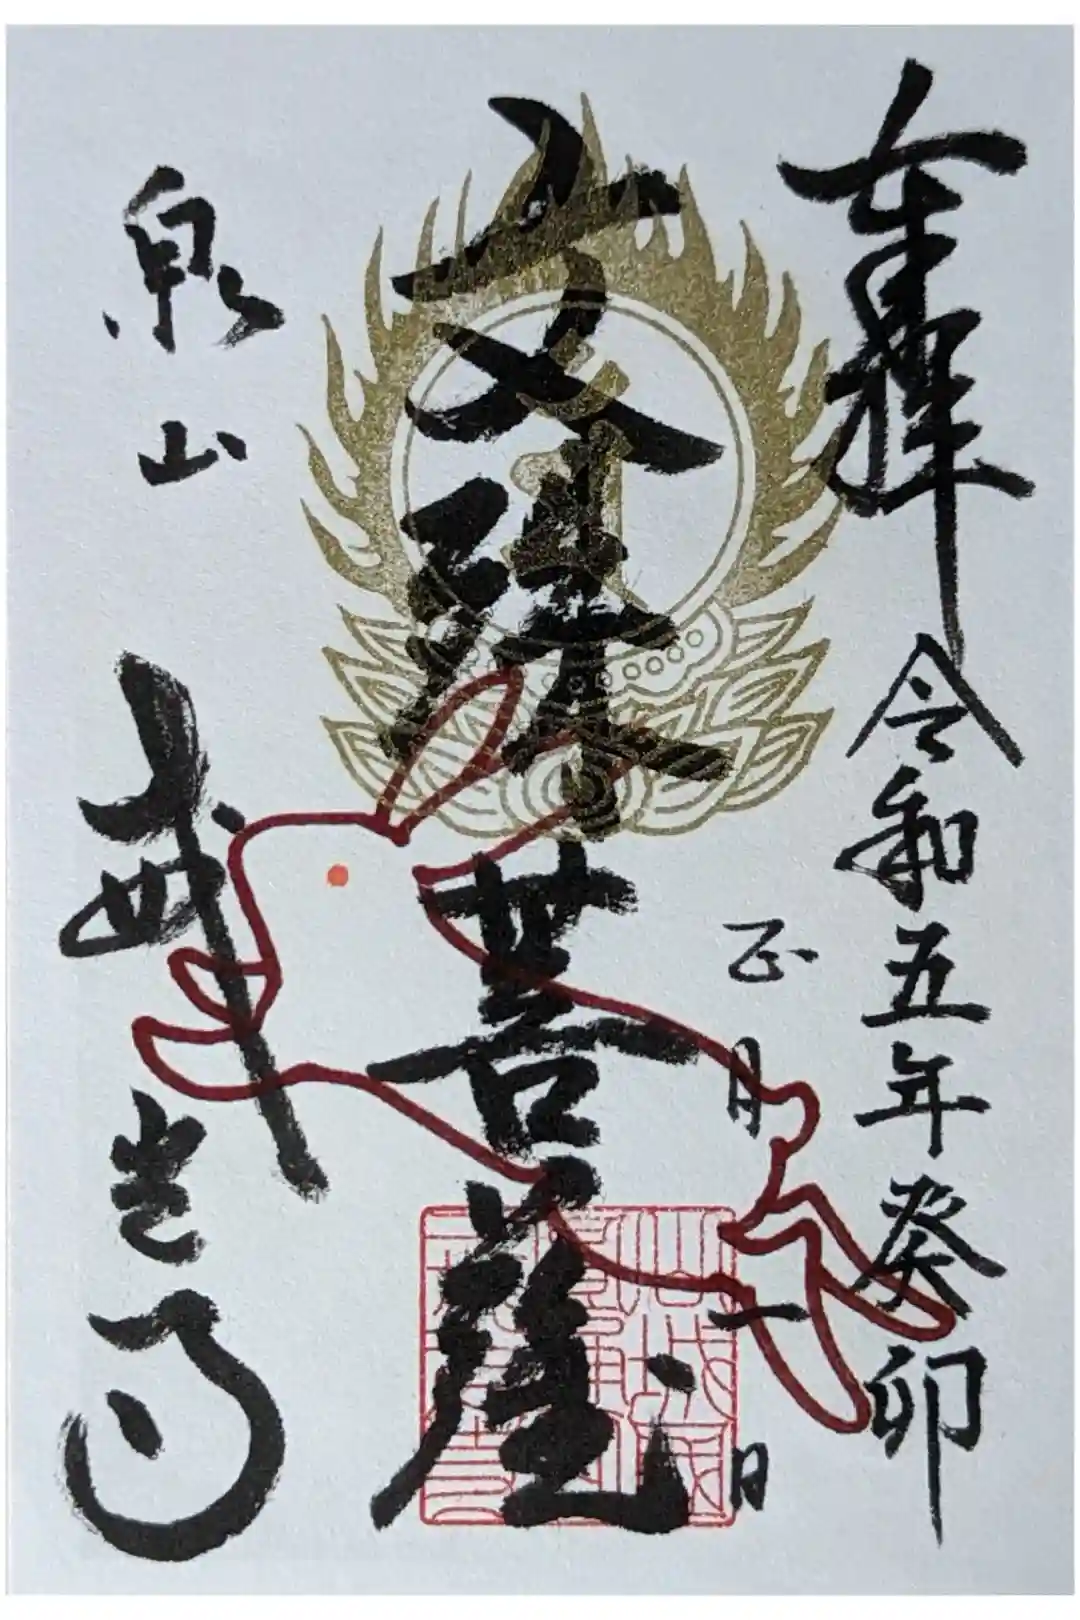 奉拝 令和五年癸卯
正月一日
文殊菩薩
泉山 戒光寺